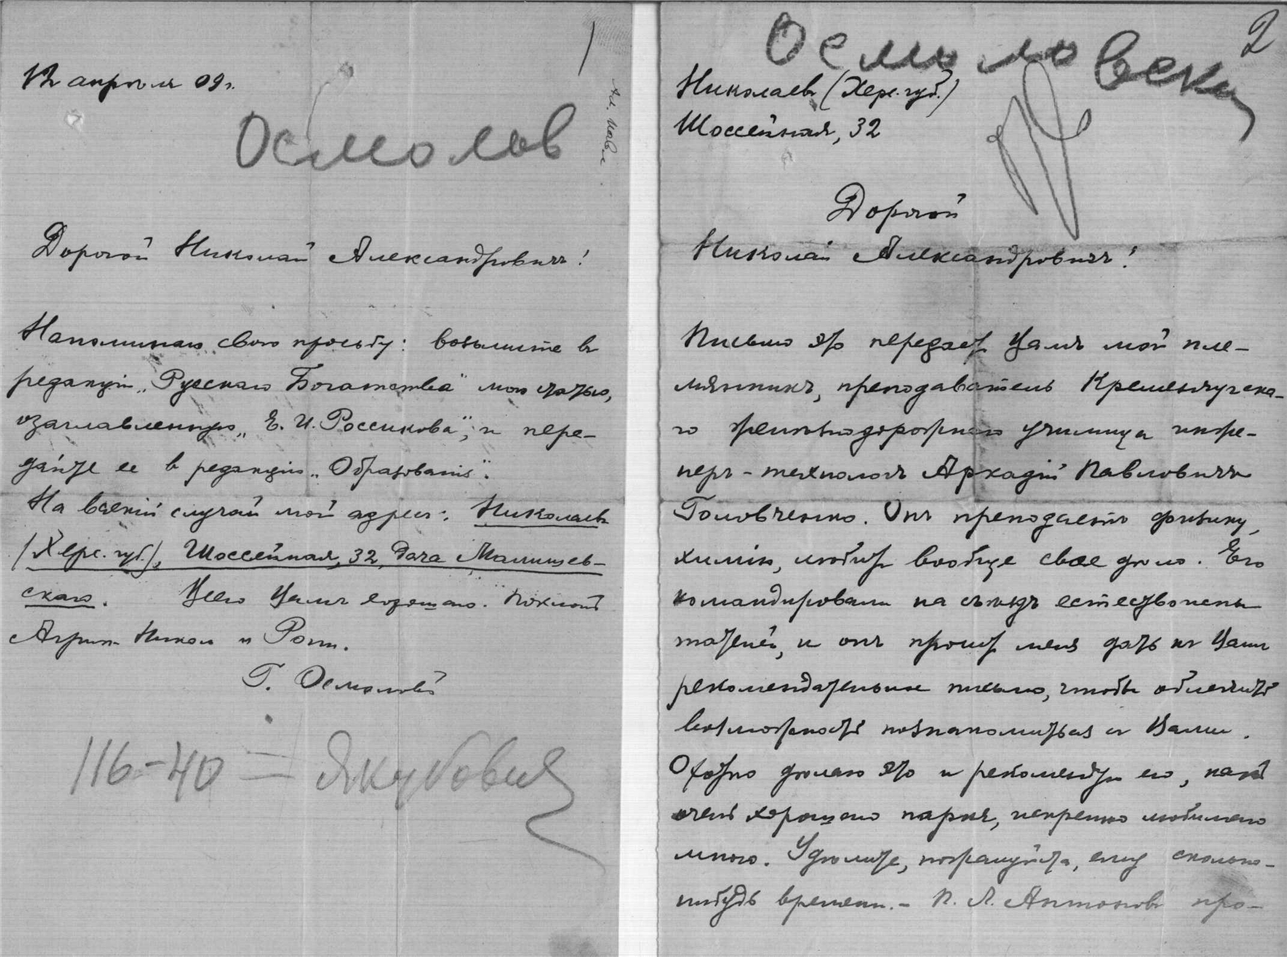 1
12 апрѣля 09 г.
Осмолов
Дорогой Николай Александровичъ!
Напоминаю свою просьбу: возьмите въ
редакціи „Русскаго Богатства“ мою статью,
озаглавленную „Е. И. Россикова“, и пере-
дайте ее в редакцію „Образованія“.
На всякій случай мой адресъ: Николаевъ
(Херс. губ.), Шоссейная, 32, Дача Малишев-
скаго. Всего Вамъ хорошаго. Поклонъ
Никол и
Г. Осмоловс
116-40 = Якубовия
2
Осмоловски
Николаевъ (Херс. губ.)
Шоссейная, 32
Дорогой
Николай Александровичъ!
Письмо это передаетъ Вамъ мой пле-
мянникъ, преподаватель Кременчугска-
го желѣзнодорожнаго училища инже-
неръ-технологъ Аркадій Павловичъ
Головченко. Онъ преподаетъ физику,
химію, любитъ вообще свое дѣло. Его
командировали на съѣздъ естествоиспы
тателей, и онъ проситъ меня дать къ Вамъ
рекомендательное письмо, чтобы облегчить
возможность познакомиться съ Вами.
Охотно дѣлаю это и рекомендую его, какъ
очень хорошаго парня, искренно любимаго
мною. Удѣлите, пожалуйста, ему сколько-
нибудь времени. – П. Л. Антоновъ про-